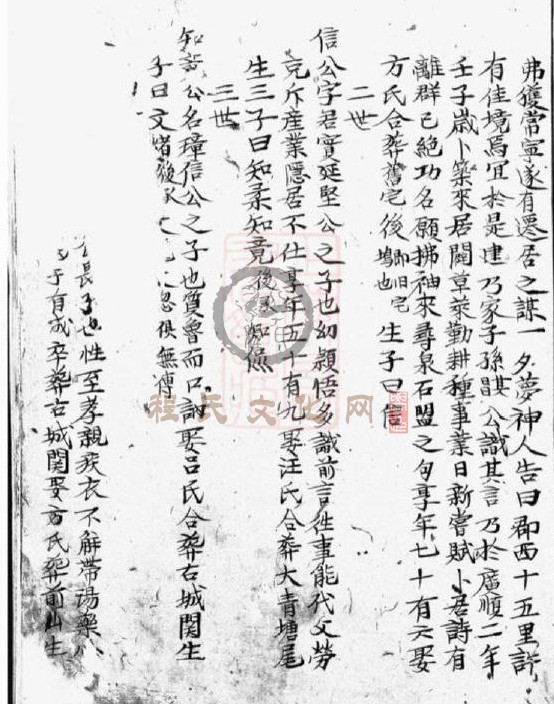 弗獲常寧遂有遷居之謀一夕夢神人告曰郡西十五里許
有佳境焉宜於是建乃家子孫諶公識其言乃於廣順二年
壬子歲卜築來居闢草萊勤耕種事業日新嘗賦卜居詩有
離群已絕功名願拂袖來尋泉石盟之句享年七十有六娶
方氏合葬舊宅後即旧宅塢也生子曰信
二世
信公字君實延堅公之子也幼穎悟多識前言往事能代父勞
克斥産業隱居不仕享年五十有九娶汪氏合葬大青塘尾
生三子曰知柔知竟知
三世
公名璋信公之子也質魯而口訥娶呂氏合葬右城関生
子曰文 忽俱無傳
長子也性至孝親疾衣不解帶湯藥
于有成卒葬右城関娶方氏葬前山生
程氏文化网